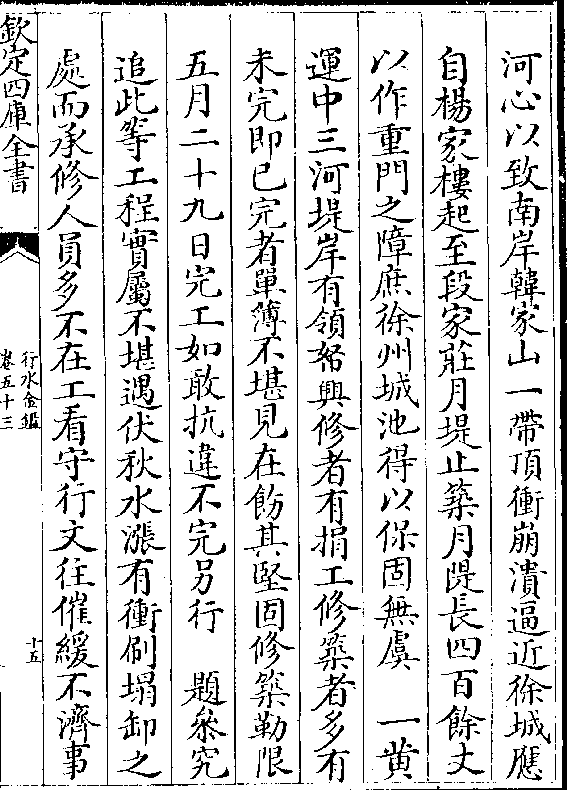 河心以致南岸韓家山一帶頂衝崩潰逼近徐城應
自楊家樓起至段家莊月堤止築月隄長四百餘丈
以作重門之障庶徐州城池得以保固無虞　一黃
運中三河堤岸有領帑興修者有捐工修築者多有
未完即已完者單簿不堪見在飭其堅固修築勒限
五月二十九日完工如敢抗違不完另行　題叅究
追此等工程實屬不堪遇伏秋水漲有衝刷塌卸之
處而承修人員多不在工看守行文往催緩不濟事
欽定四庫全書
行水金鑑
卷五十三
十五